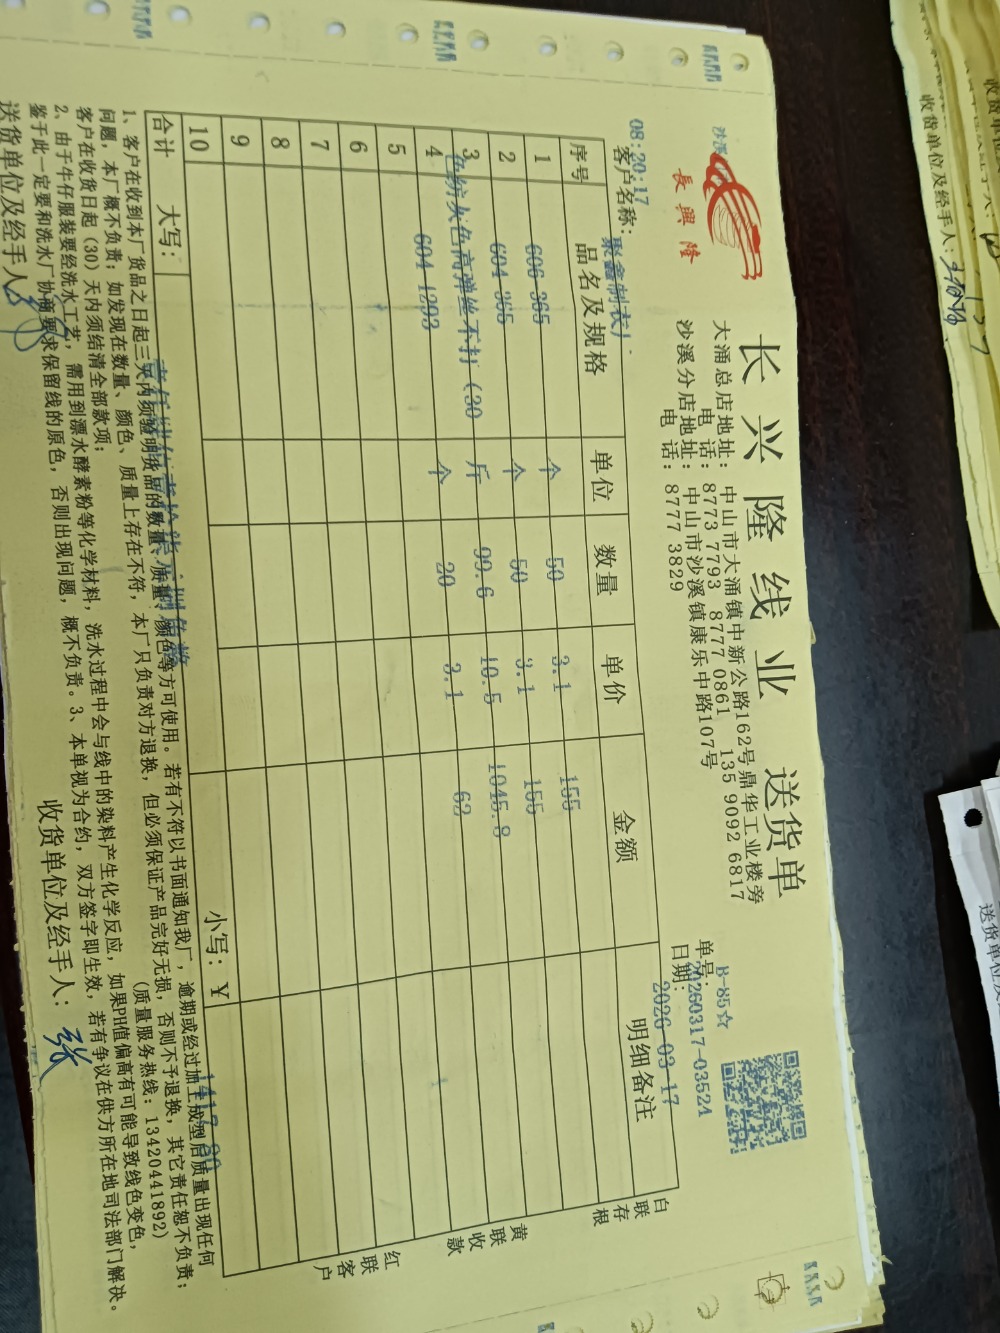 长兴隆线业 送货单
長興隆
大涌总店地址：中山市大涌镇中新公路162号鼎华工业楼旁
电 话：8773 7793 8777 0861 135 9092 6817
沙溪分店地址：中山市沙溪镇康乐中路107号
电 话：8777 3829
B-85☆
单号：20260317-0352A
日期：2026-03-17
08:20:17
客户名称：聚鑫制衣厂
序号 品名及规格 单位 数量 单价 金额 明细备注
1 606 365 个 50 3.1 155
2 604 365 个 50 3.1 155
3 色纺灰色高弹丝不打（30 斤 99.6 10.5 1045.8
4 604 1293 个 20 3.1 62
5
6
7
8
9
10
合计 大写： 小写：￥ 1417.80
白联存根
黄联收款
红联客户
1、客户在收到本厂货品之日起三天内须验明货品的数量、质量、颜色等方可使用。若有不符以书面通知我厂，逾期或经过加工成型后质量出现任何
问题，本厂概不负责；如发现在数量、颜色、质量上存在不符，本厂只负责对方退换，但必须保证产品完好无损，否则不予退换，其它责任恕不负责；
客户在收货日起（30）天内须结清全部款项； （质量服务热线：13420441892）
2、由于牛仔服装要经洗水工艺，需用到漂水酵素粉等化学材料，洗水过程中会与线中的染料产生化学反应，如果PH值偏高有可能导致线色变色，
鉴于此一定要和洗水厂协商要求保留线的原色，否则出现问题，概不负责。3、本单视为合约，双方签字即生效，若有争议在供方所在地司法部门解决。
送货单位及经手人： 收货单位及经手人：张
收货单位及经手人：
送货单位及